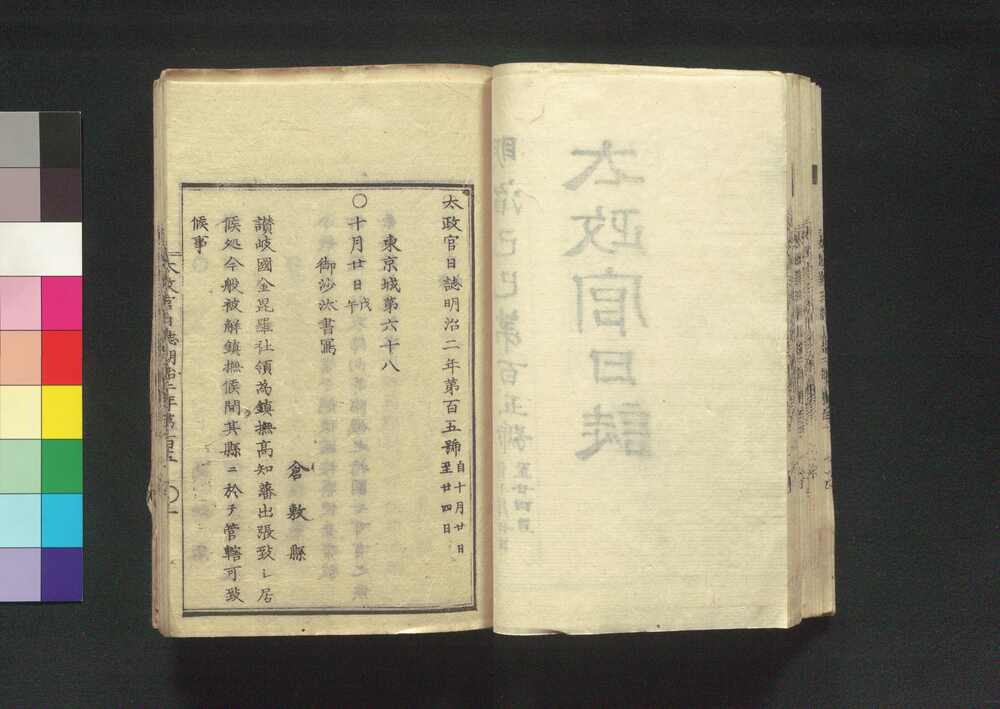 太政官日誌
明治己巳第百五號
至廿四日
太政官日誌明治二年第百五號
自十月廿日
至廿四日
東京城第六十八
〇十月廿日戊午
御沙汰書寫
倉敷縣
讃岐國金毘羅社領為鎮撫高知藩出張致シ居
候処今般被解鎮撫候間其縣ニ於テ管轄可致
候事
太政官日誌明治二年第百五